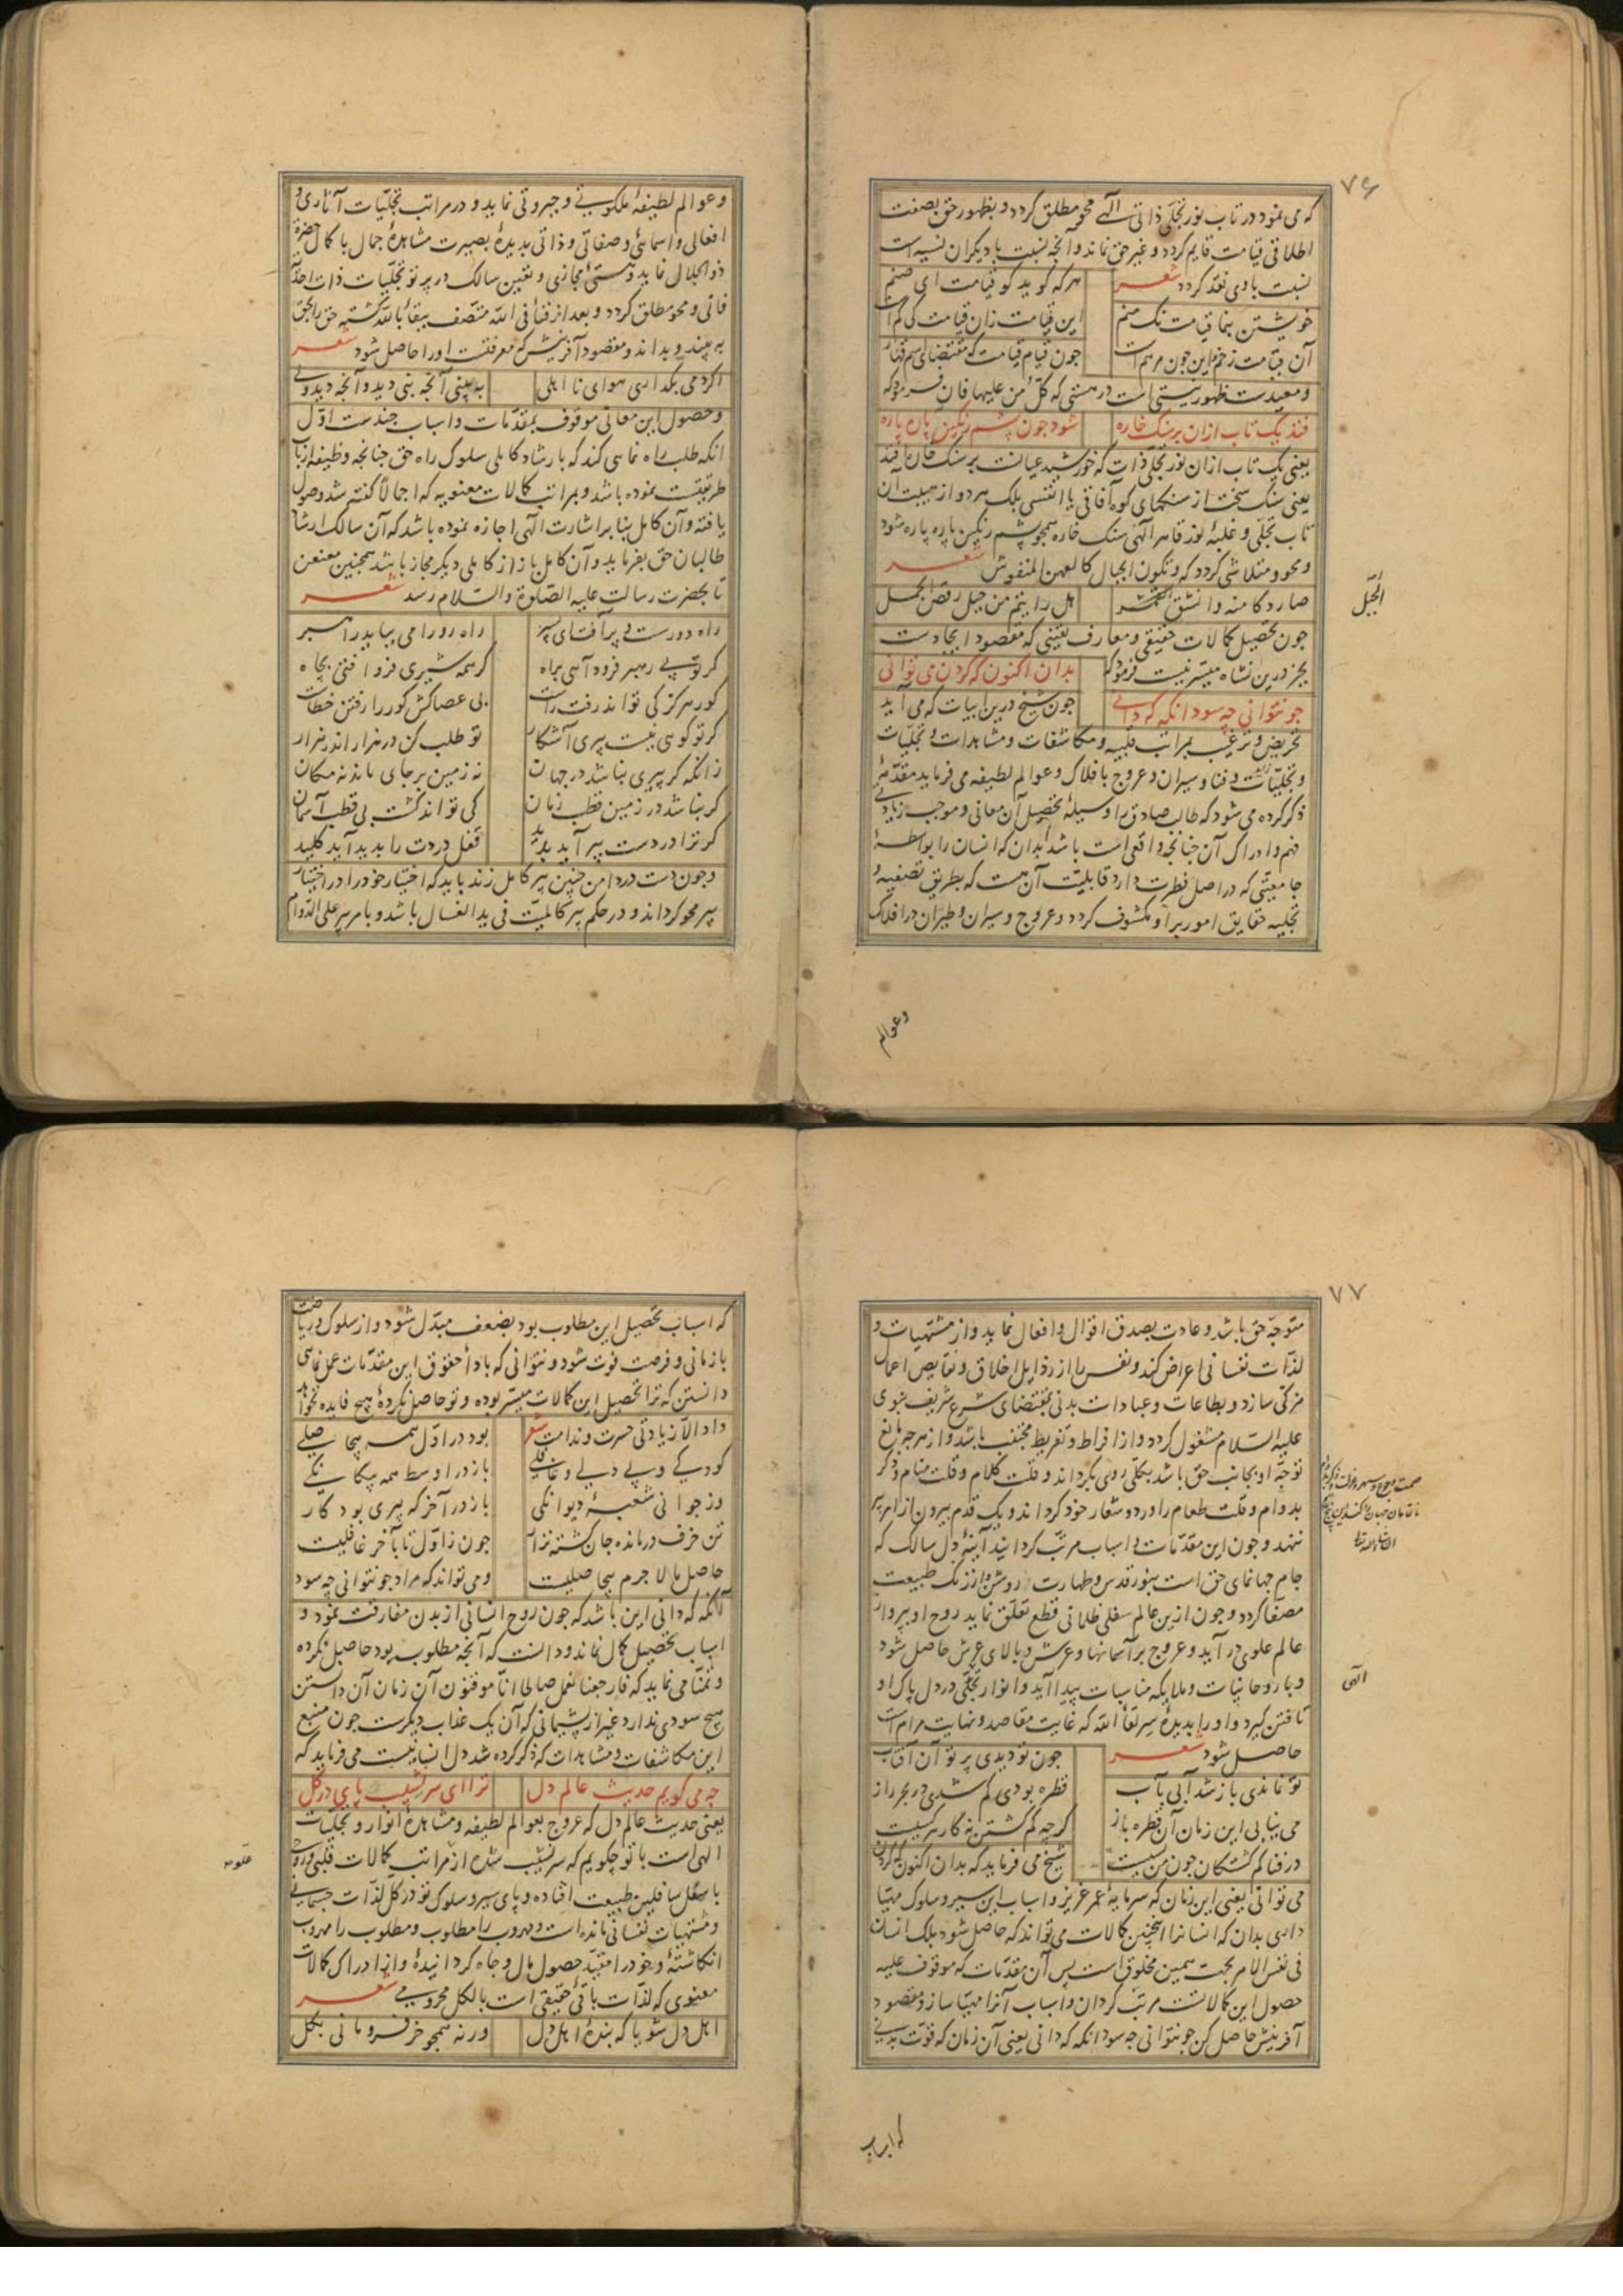 ۷۶
که می نمود در تاب نور تجلّی ذاتی الٓهی محو مطلق کردد و بظهور حق بصفت
اطلاقی قیامت قایم کردد و غیر حق نماند و آنچه نسبت با دیکران نسیه است
نسبت با وی نقد کردد شعر
هر که کوید کو قیامت ای صنم
خویشتن بنما قیامت نک منم
این قیامت زان قیامت کی کم است
آن قیامت زخم و این چون مرهم است
چون قیام قیامت که مقتضای اسم قهار
و معیدست ظهور نیستی است در هستی که کلّ من علیها فان فرمود که
فتد یک تاب ازان بر سنک خاره
شود چون پشم رنکین پاره پاره
یعنی یک تاب ازان نور تجلی ذات که خورشید عیانست بر سنک خاره افتد
یعنی سنک سخت از سنکهای کوه آفاقی یا انفسی بلک هر دو از هیبت آن
تاب تجلّی و غلبهٔ نور قاهر الهی سنک خاره همچو پشم رنکین پاره پاره شود
و محو و متلاشی کردد که و تکون الجبال کالعهن المنفوش شعر
صار دکا منه و انشق الجبل
هل رایتم من جبل رقص الجمل
الجبل
چون تحصیل کمالات حقیقی و معارف یقینی که مقصود ایجادست
بجز درین نشاه میسّر نیست فرمود که
بدان اکنون که کردن می توانی
چو نتوانی چه سود انکه که دانی
چون شیخ درین ابیات که می آید
تحریض و ترغیب بمراتب قلبیه و مکاشفات و مشاهدات و تجلّیات
و تجلیّات و فنا و سیران و عروج بافلاک و عوالم لطیفه می فرماید مقدّمه
ذکر کرده می شود که طالب صادق را وسیلهٔ تحصیل آن معانی و موجب زیادتی
فهم و ادراک آن چنانچه واقعی است باشد بدان که انسان را بواسطهٔ
جامعیّتی که در اصل فطرت دارد قابلیّت آن هست که بطریق تصفیه و
تجلیه حقایق امور بر او مکشوف کردد و عروج و سیران و طیران در افلاک
وعوالم
و عوالم لطیفهٔ ملکوتی و جبروتی نماید و در مراتب تجلّیات آثاری و
افعالی و اسمائی و صفاتی و ذاتی بدیدهٔ بصیرت مشاهدهٔ جمال با کمال حضرة
ذو الجلال نماید و هستیٔ مجازی و تعین سالک در پرتو تجلّیات ذات احدیّ
فانی و محو مطلق کردد و بعد از فنا فی الله متصف ببقا بالله کشته حق را بحق
به بیند و بداند و مقصود آفرینش که معرفتست او را حاصل شود شعر
اکر می بکذاری هوای نا اهلی
به بینی آنچه نبی دید و آنچه دید ولی
و حصول این معانی موقوف بمقدّمات و اسباب چندست اوّل
انکه طلب راه نمایی کند که بارشاد کاملی سلوک راه حق چنانچه وظیفهٔ ارباب
طریقتست نموده باشد و بمراتب کمالات معنویه که اجمالا کفته شد وصول
یافته و آن کامل بنا بر اشارت الٓهی اجازه نموده باشد که آن سالک ارشاد
طالبان حق بفرماید و آن کامل باز از کاملی دیکر مجاز باشد همچنین معنعن
تا بحضرت رسالت علیه الصّلوة و السّلام رسد شعر
راه دورست و پر آفت ای پسر
راه رو را می بباید راهبر
کر تو بی رهبر فرود آیی براه
کر همه شیری فرو افتی بچاه
کور هرکز کی تواند رفت راست
بی عصاکش کور را رفتن خطاست
کر تو کویی نیست پیری آشکار
تو طلب کن در هزار اندر هزار
زانکه کر پیری نباشد در جهان
نه زمین بر جای ماند نه مکان
کر نباشد در زمین قطب زمان
کی تواند کشت بی قطب آسمان
کر ترا دردست پیر آید پدید
قفل دردت را پدید آید کلید
و چون دست در دامن چنین پیر کامل زند باید که اختیار خود را در اختیار
پیر محو کرداند و در حکم پیر کالمیّت فی ید الغسال باشد و بامر پیر علی الدّوام
۷۷
متوجّه حق باشد و عادت بصدق اقوال و افعال نماید و از مشتهیات و
لذّات نفسانی اعراض کند و نفس را از رذایل اخلاق و نقایص اعمال
مزکّی سازد و بطاعات و عبادات بدنی بمقتضای شرع شریف نبوی
علیه السلام مشغول کردد و از افراط و تفریط مجتنب باشد و از هرچه مانع
توجّه او بجانب حق باشد بکلّی روی بکرداند و قلت کلام و قلت منام و ذکر
بدوام و قلّت طعام را ورد و شعار خود کرداند و یک قدم بیرون از امر پیر
ننهد و چون این مقدّمات و اسباب مرتّب کردانید آینهٔ دل سالک که
جام جهانمای حق است بنور قدس و طهارت روشن و از زنک طبیعت
مصفّا کردد و چون ازین عالم سفلی ظلمانی قطع تعلّق نماید روح او پرواز
عالم علوی در آید و عروج بر آسمانها و عرش و بالای عرش حاصل شود
و با روحانیات و ملایکه مناسبات پیدا آید و انوار تجلّی در دل پاک او
الٓهی
تافتن کیرد و او را بدیدهٔ سرّ لقاء الله که غایت مقاصد و نهایت مرامست
حاصل شود شعر
چون تو دیدی پرتو آن آفتاب
تو نماندی باز شد آبی بآب
قطره بودی کم شدی در بحر راز
می نیابی این زمان آن قطره باز
کرچه کم کشتن نه کار هر کسیست
در فنا کم کشتکان چون من بسیست
شیخ می فرماید که بدان اکنون که کردن
می توانی یعنی این زمان که سرمایهٔ عمر عزیز و اسباب این سیر و سلوک مهیّا
داری بدان که انسانرا اینچنین کمالات می تواند که حاصل شود بلک انسان
فی نفس الامر بجهت همین مخلوق است پس آن مقدّمات که موقوف علیه
حصول این کمالاتست مرتّب کردان و اسباب آنرا مهیّا ساز و مقصود
آفرینش حاصل کن چو نتوانی چه سود انکه که دانی یعنی آن زمان که قوّت بدنی
که اسباب
که اسباب تحصیل این مطلوب بود بضعف مبدّل شود و از سلوک و ریاضت
باز مانی و فرصت فوت شود و نتوانی که باداء حقوق این مقدّمات عمل نمایی
دانستن که ترا تحصیل این کمالات میسّر بوده و تو حاصل نکردهٔ هیچ فایده نخواهد
داد الّا زیادتی حسرت و ندامت شعر
بود در اوّل همه بیحاصلی
کودکی و بی دلی و غافلی
باز در اوسط همه بیکانکی
وز جوانی شعبهٔ دیوانکی
باز در آخر که پیری بود کار
تن خرف درمانده جان کشته نزار
چون ز اوّل تا بآخر غافلیست
حاصل ما لا جرم بیحاصلیست
و می تواند که مراد چو نتوانی چه سود
انکه که دانی این باشد که چون روح انسانی از بدن مفارقت نمود و
اسباب تحصیل کمال نماند و دانست که آنچه مطلوب بود حاصل نکرده
و تمنّا می نماید که فارجعنا نعمل صالحا انّا موقنون آن زمان آن دانستن
هیچ سودی ندارد غیر از پشیمانی که آن یک عذاب دیکرست چون منبع
این مکاشفات و مشاهدات که ذکر کرده شد دل انسانیست می فرماید که
چه می کویم حدیث عالم دل
ترا ای سرنشیب پای در کل
یعنی حدیث عالم دل که عروج بعوالم لطیفه و مشاهدهٔ انوار و تجلّیات
الٓهی است با تو چکویم که سرنشیب شدهٔ از مراتب کمالات قلبی و روحی
علویه
باسفل سافلین طبیعت افتاده و پای سیر و سلوک تو در کل لذّات جسمانی
و مشتهیات نفسانی مانده است و مهروب را مطلوب و مطلوب را مهروب
انکاشتهٔ و خود را مقیّد حصول مال و جاه کردانیدهٔ و از ادراک کمالات
معنوی که لذّات باقیٔ حقیقی است بالکل محرومی شعر
اهل دل شو یا که بندهٔ اهل دل
ورنه همچو خر فرو مانی بکل